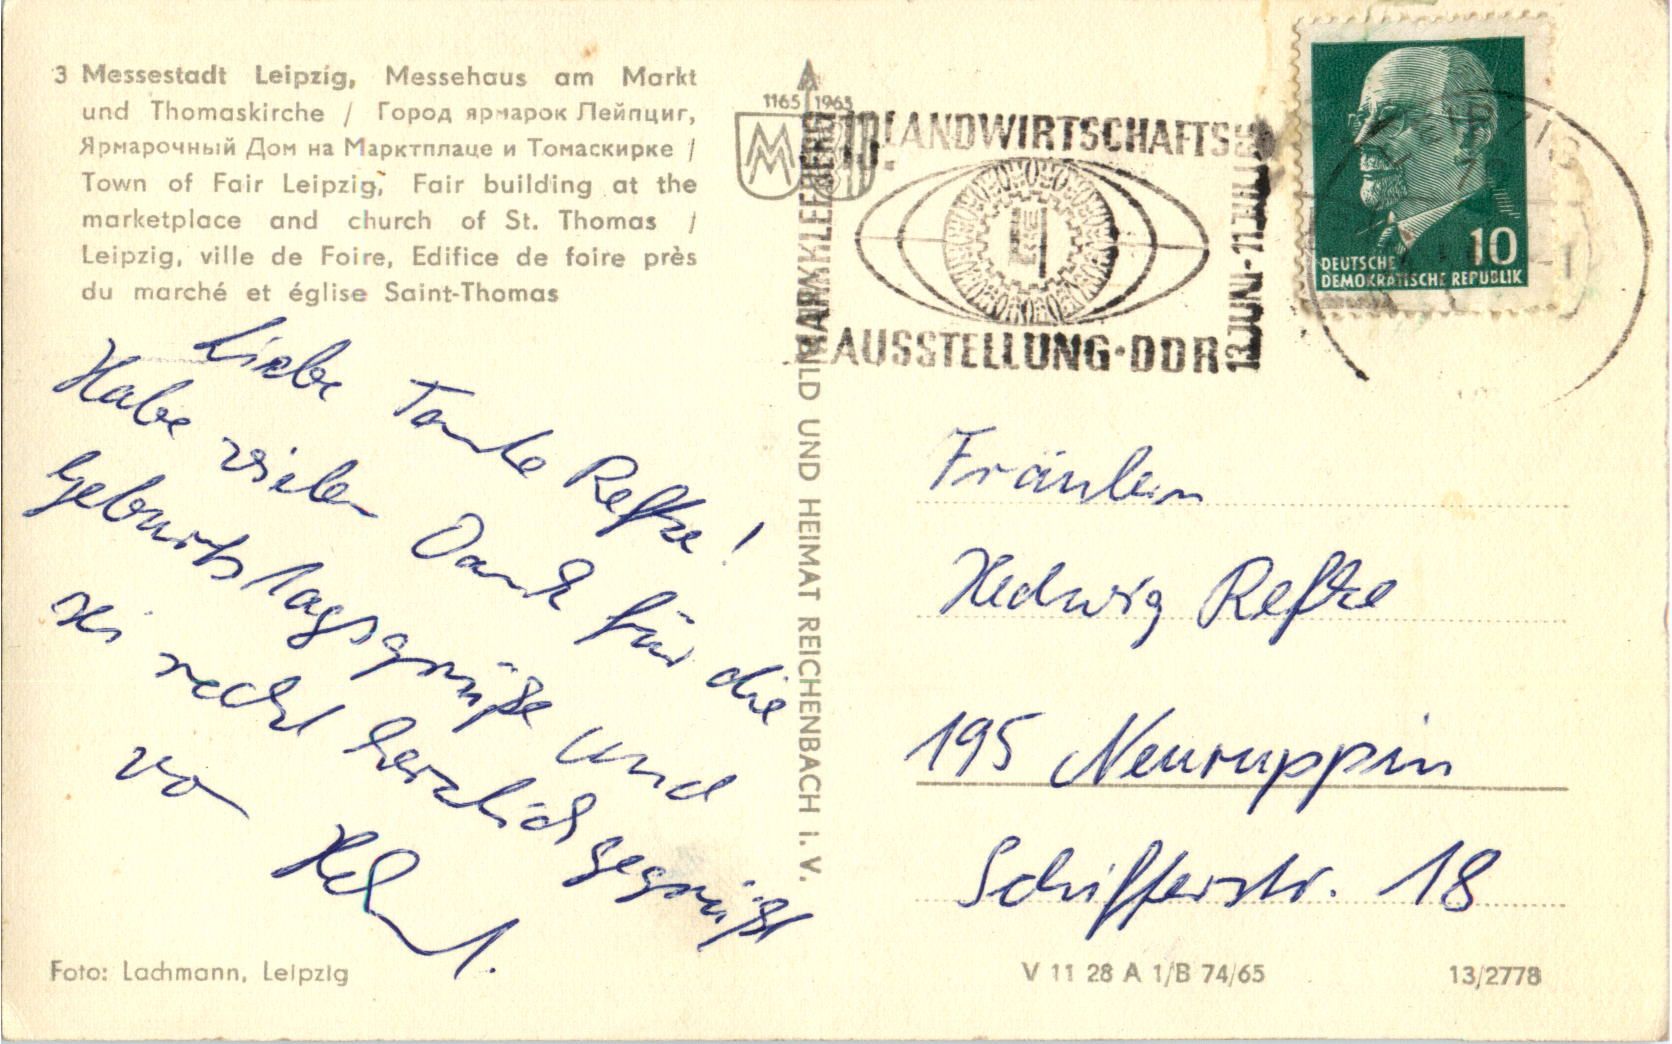 3 Messestadt Leipzig, Messehaus am Markt
und Thomaskirche / Город ярмарок Лейпциг,
Ярмарочный Дом на Марктплаце и Томаскирке /
Town of Fair Leipzig, Fair building at the
marketplace and church of St. Thomas /
Leipzig, ville de Foire, Edifice de foire près
du marché et église Saint-Thomas
Liebe Tante Refke!
Habe vielen Dank für die
Geburtstagsgrüße und
sei recht herzlich gegrüßt
von
Foto: Lachmann, Leipzig
BILD UND HEIMAT REICHENBACH I. V.
1165 1965
MM
LANDWIRTSCHAFTS
AUSSTELLUNG·DDR
MARKKLEEBERG
LEIPZIG
10
DEUTSCHE
DEMOKRATISCHE REPUBLIK
Fräulein
Hedwig Refke
195 Neuruppin
Schifferstr. 18
V 11 28 A 1/B 74/65
13/2778